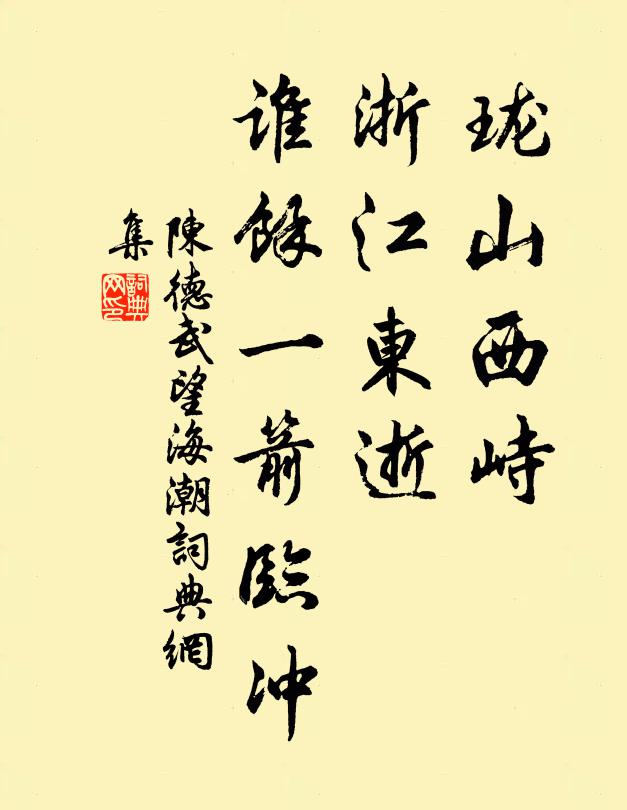 珑山西峙
浙江東逝
誰餘一箭臨冲
陳德武望海潮詞典網
集
詞典
网印